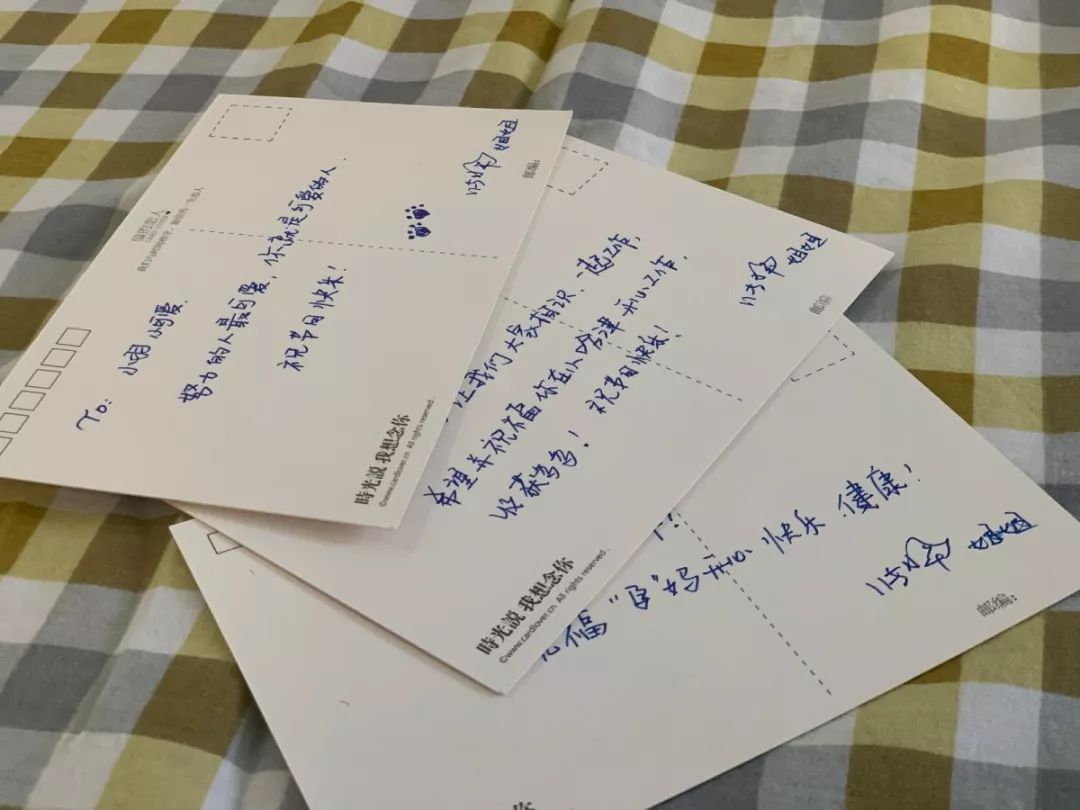 To:
小羽 小可爱.
努力的人最可爱, 你就是可爱的人.
祝节日快乐!
姐姐
邮编:
時光說 我想念你
©www.cardlover.cn All rights reserved.
让我们大会相识、工作,
希望并祝福你在小哈津开心工作,
收获多多! 祝节日快乐!
姐姐
邮编
時光說 我想念你
©www.cardlover.cn All rights reserved.
福"白"妈开心、快乐、健康!
姐姐
邮编: